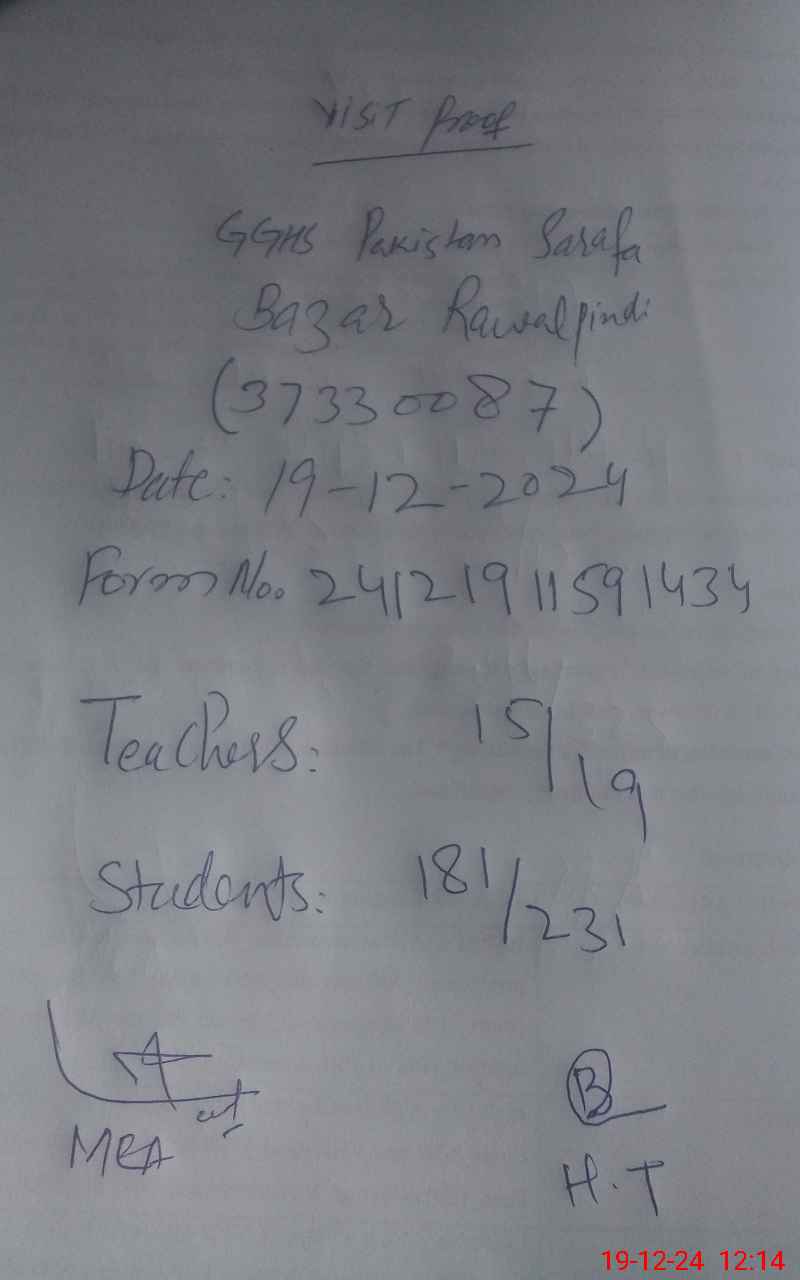 VISIT Proof
GGHS Pakistan Sarafa
Bazar Rawalpindi
(37330087)
Date: 19-12-2024
Form No. 24121911591434
Teachers: 15/19
Students: 181/231
B
MEA
H.T
19-12-24 12:14